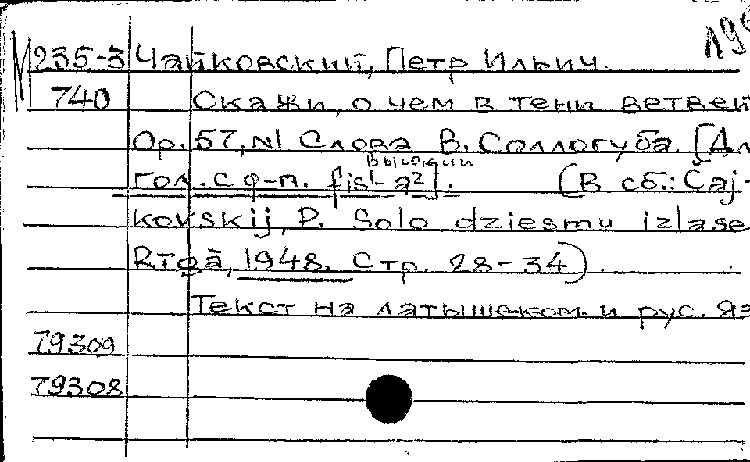 М 235-3 Чайковский, Петр Ильич.
740 Скажи, о чем в тени ветвей
Op. 57, N1 Слова В. Соллогуба. [Дл
гол. с ф-п. fis¹-a²]. (В сб.: Čaj-
kovskij, P. Solo dziesmu izlase
Rīgā, 1948. Стр. 28-34)
Текст на латышском и рус. яз
79309
79308